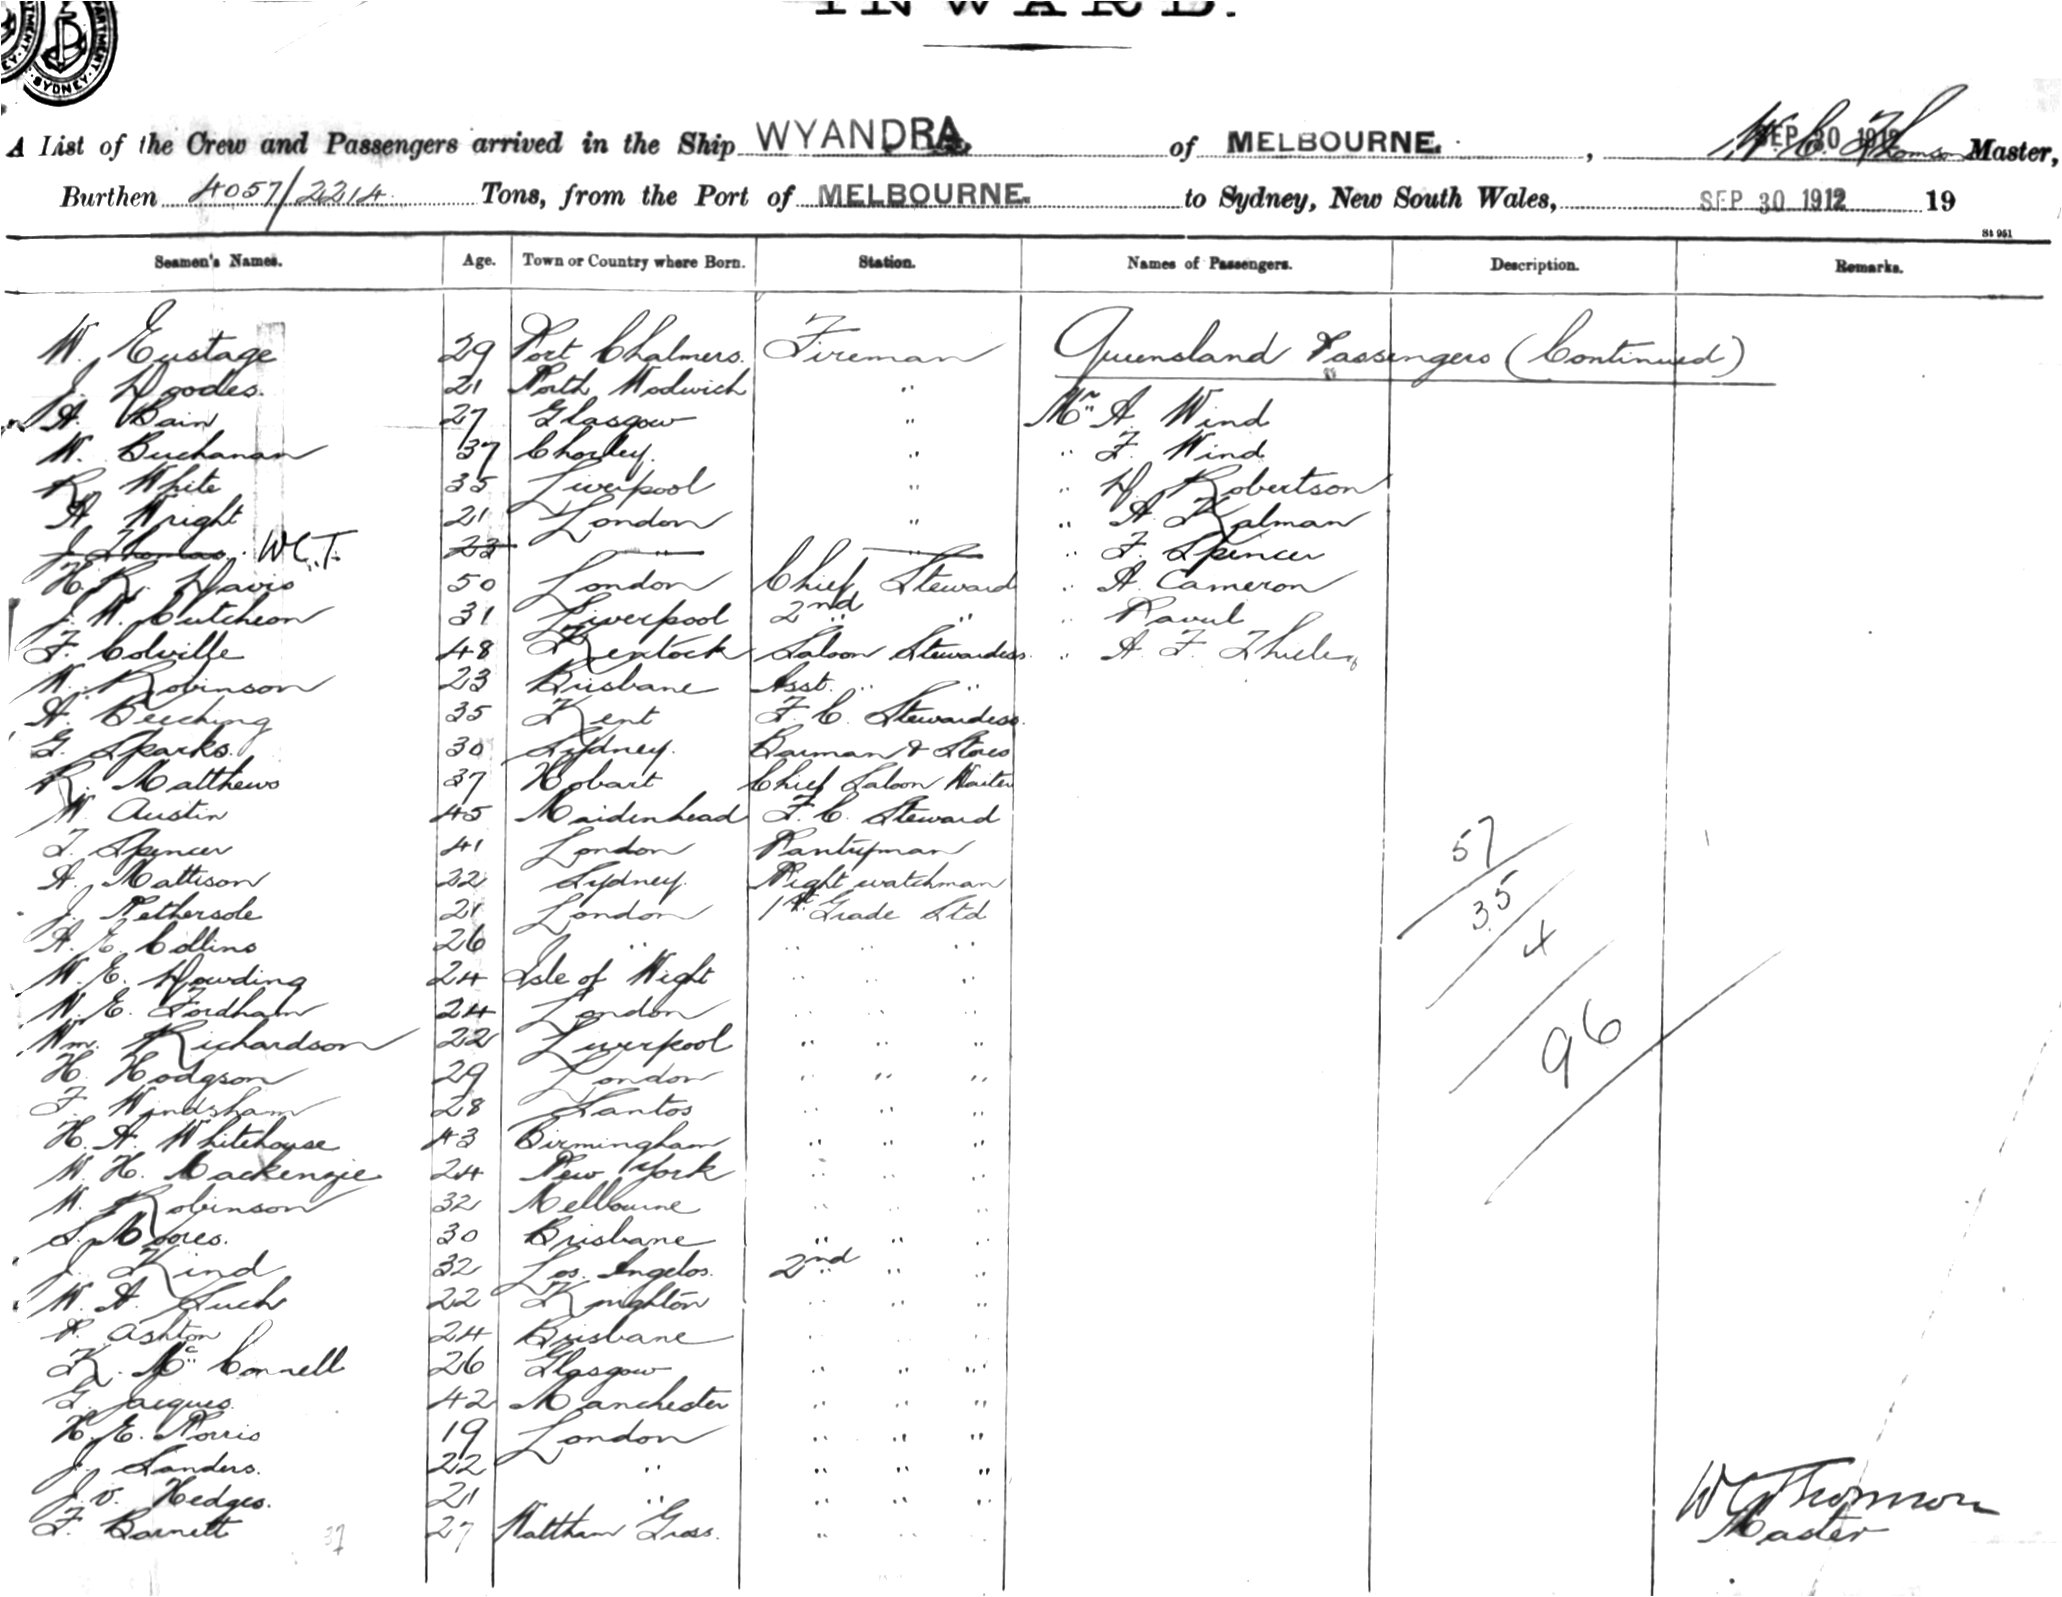 INWARD.
A List of the Crew and Passengers arrived in the Ship WYANDRA. of MELBOURNE. , W. C. Thomson SEP 30 1912 Master,
Burthen 4057/2214 Tons, from the Port of MELBOURNE. to Sydney, New South Wales, SEP 30 1912 19
Seamen's Names. Age. Town or Country where Born. Station. Names of Passengers. Description. Remarks.
W. Eustage 29 Port Chalmers. Fireman Queensland Passengers (Continued)
J. Doodes. 21 North Woolwich "
A. Bain 27 Glasgow " Mr. A. Wind
W. Buchanan 37 Chorley. " " F. Wind
R. White 35 Liverpool " " D. Robertson
A. Wright 21 London " " A. Kalman
J. Thomas. W.C.T. 23 " F. Spencer
H. R. Davis 50 London Chief Steward " A. Cameron
J. W. Cutcheon 31 Liverpool 2nd " " "
F. Colville 48 Saloon Stewardess. " A. F. Thiele
W. Robinson 23 Brisbane Asst. " "
A. Beeching 35 Kent F. C. Stewardess.
G. Sparks. 30 Sydney. Barman & Stores
R. Matthews 37 Hobart Chief Saloon Waiter
W. Austin 45 Maidenhead F. C. Steward
F. Spencer 41 London Pantryman
A. Mattison 22 Sydney. Night watchman
J. Nethersole 21 London 1st Grade Std
A. E. Collins 26 " " " "
W. E. Dowding 24 Isle of Wight " " "
W. E. Fordham 24 London " " "
Wm. Richardson 22 Liverpool " " "
H. Hodgson 29 London " " "
F. Windsham 28 Santos " " "
H. A. Whitehouse 43 Birmingham " " "
W. H. Mackenzie 24 New York " " "
W. Robinson 32 Melbourne " " "
S. Moores. 30 Brisbane " " "
J. Kind 32 Los Angelos. 2nd " " "
W. A. Such 22 Knighton " " "
P. Ashton 24 Brisbane " " "
K. McConnell 26 Glasgow " " "
G. Jacques. 42 Manchester " " "
H. E. Norris 19 London " " "
J. Sanders. 22 " " " "
J. V. Hedges. 21 " " " "
F. Barnett 27 Waltham Gross. " "
37
57
35
4
96
W C Thomson
Master